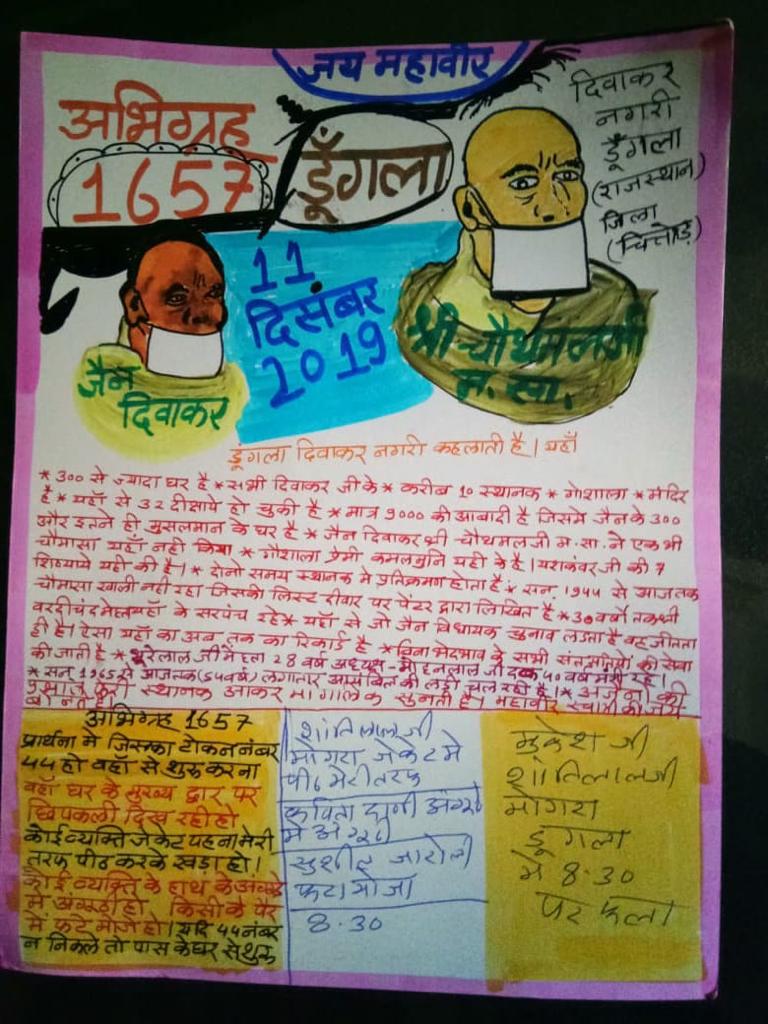 जय महावीर
अभिग्रह
1657
डूँगला
दिवाकर
नगरी
डूँगला
(राजस्थान)
जिला
(चित्तौड़)
11
दिसंबर
2019
जैन
दिवाकर
श्री चौथमलजी
म. सा.
डूंगला दिवाकर नगरी कहलाती है। यहाँ
* 300 से ज्यादा घर है * सभी दिवाकर जी के * करीब 10 स्थानक * गोशाला * मंदिर
है * यहाँ से 32 दीक्षाये हो चुकी है * मात्र 9000 की आबादी है जिसमे जैन के 300
और इतने ही मुसलमान के घर है * जैन दिवाकर श्री चौथमलजी म. सा. ने एक भी
चौमासा यहाँ नही किया * गौशाला प्रेमी कमलमुनि यही के है। यशकंवर जी की 7
शिष्याये यही की है। * दोनो समय स्थानक मे प्रतिक्रमण होता है * सन् 1944 से आज तक
चौमासा खाली नही रहा जिसकी लिस्ट दीवार पर पेंटर द्वारा लिखित है * 30 वर्षो तक श्री
वरदीचंद मेहता यहाँ के सरपंच रहे * यहाँ से जो जैन विधायक चुनाव लडता है वह जीतता
ही है। ऐसा यहाँ का अब तक का रिकार्ड है * बिना भेदभाव के सभी संत सतियों की सेवा
की जाती है * भूरेलाल जी मेहता 28 वर्ष अध्यक्ष - मोहनलाल जी दक 40 वर्ष मंत्री रहे।
* सन् 1965 से आजतक (54 वर्ष) लगातार आयंबिल की लड़ी चल रही है। * अजैनो की
स्थानक आकर मांगलिक सुनती है। महावीर स्वामी की जय
अभिग्रह 1657
प्रार्थना मे जिसका टोकन नंबर
44 हो वहाँ से शुरू करना
वहाँ घर के मुख्य द्वार पर
छिपकली दिख रही हो
कोई व्यक्ति जेकेट पहना मेरी
तरफ पीठ करके खडा हो।
कोई व्यक्ति के हाथ के अंगूठे
में अंगूठी हो किसी के पैर
में फटे मोजे हो। यदि 44 नंबर
न निकले तो पास के घर से शुरू
शांतिलाल जी
मोगरा जेकेट मे
पीठ मेरी तरफ
कविता दानी अंगूठे
में अंगूठी
सुशील जारोली
फटा मोजा
8.30
मुकेश जी
शांतिलालजी
मोगरा
डूंगला
मे 8.30
पर फला